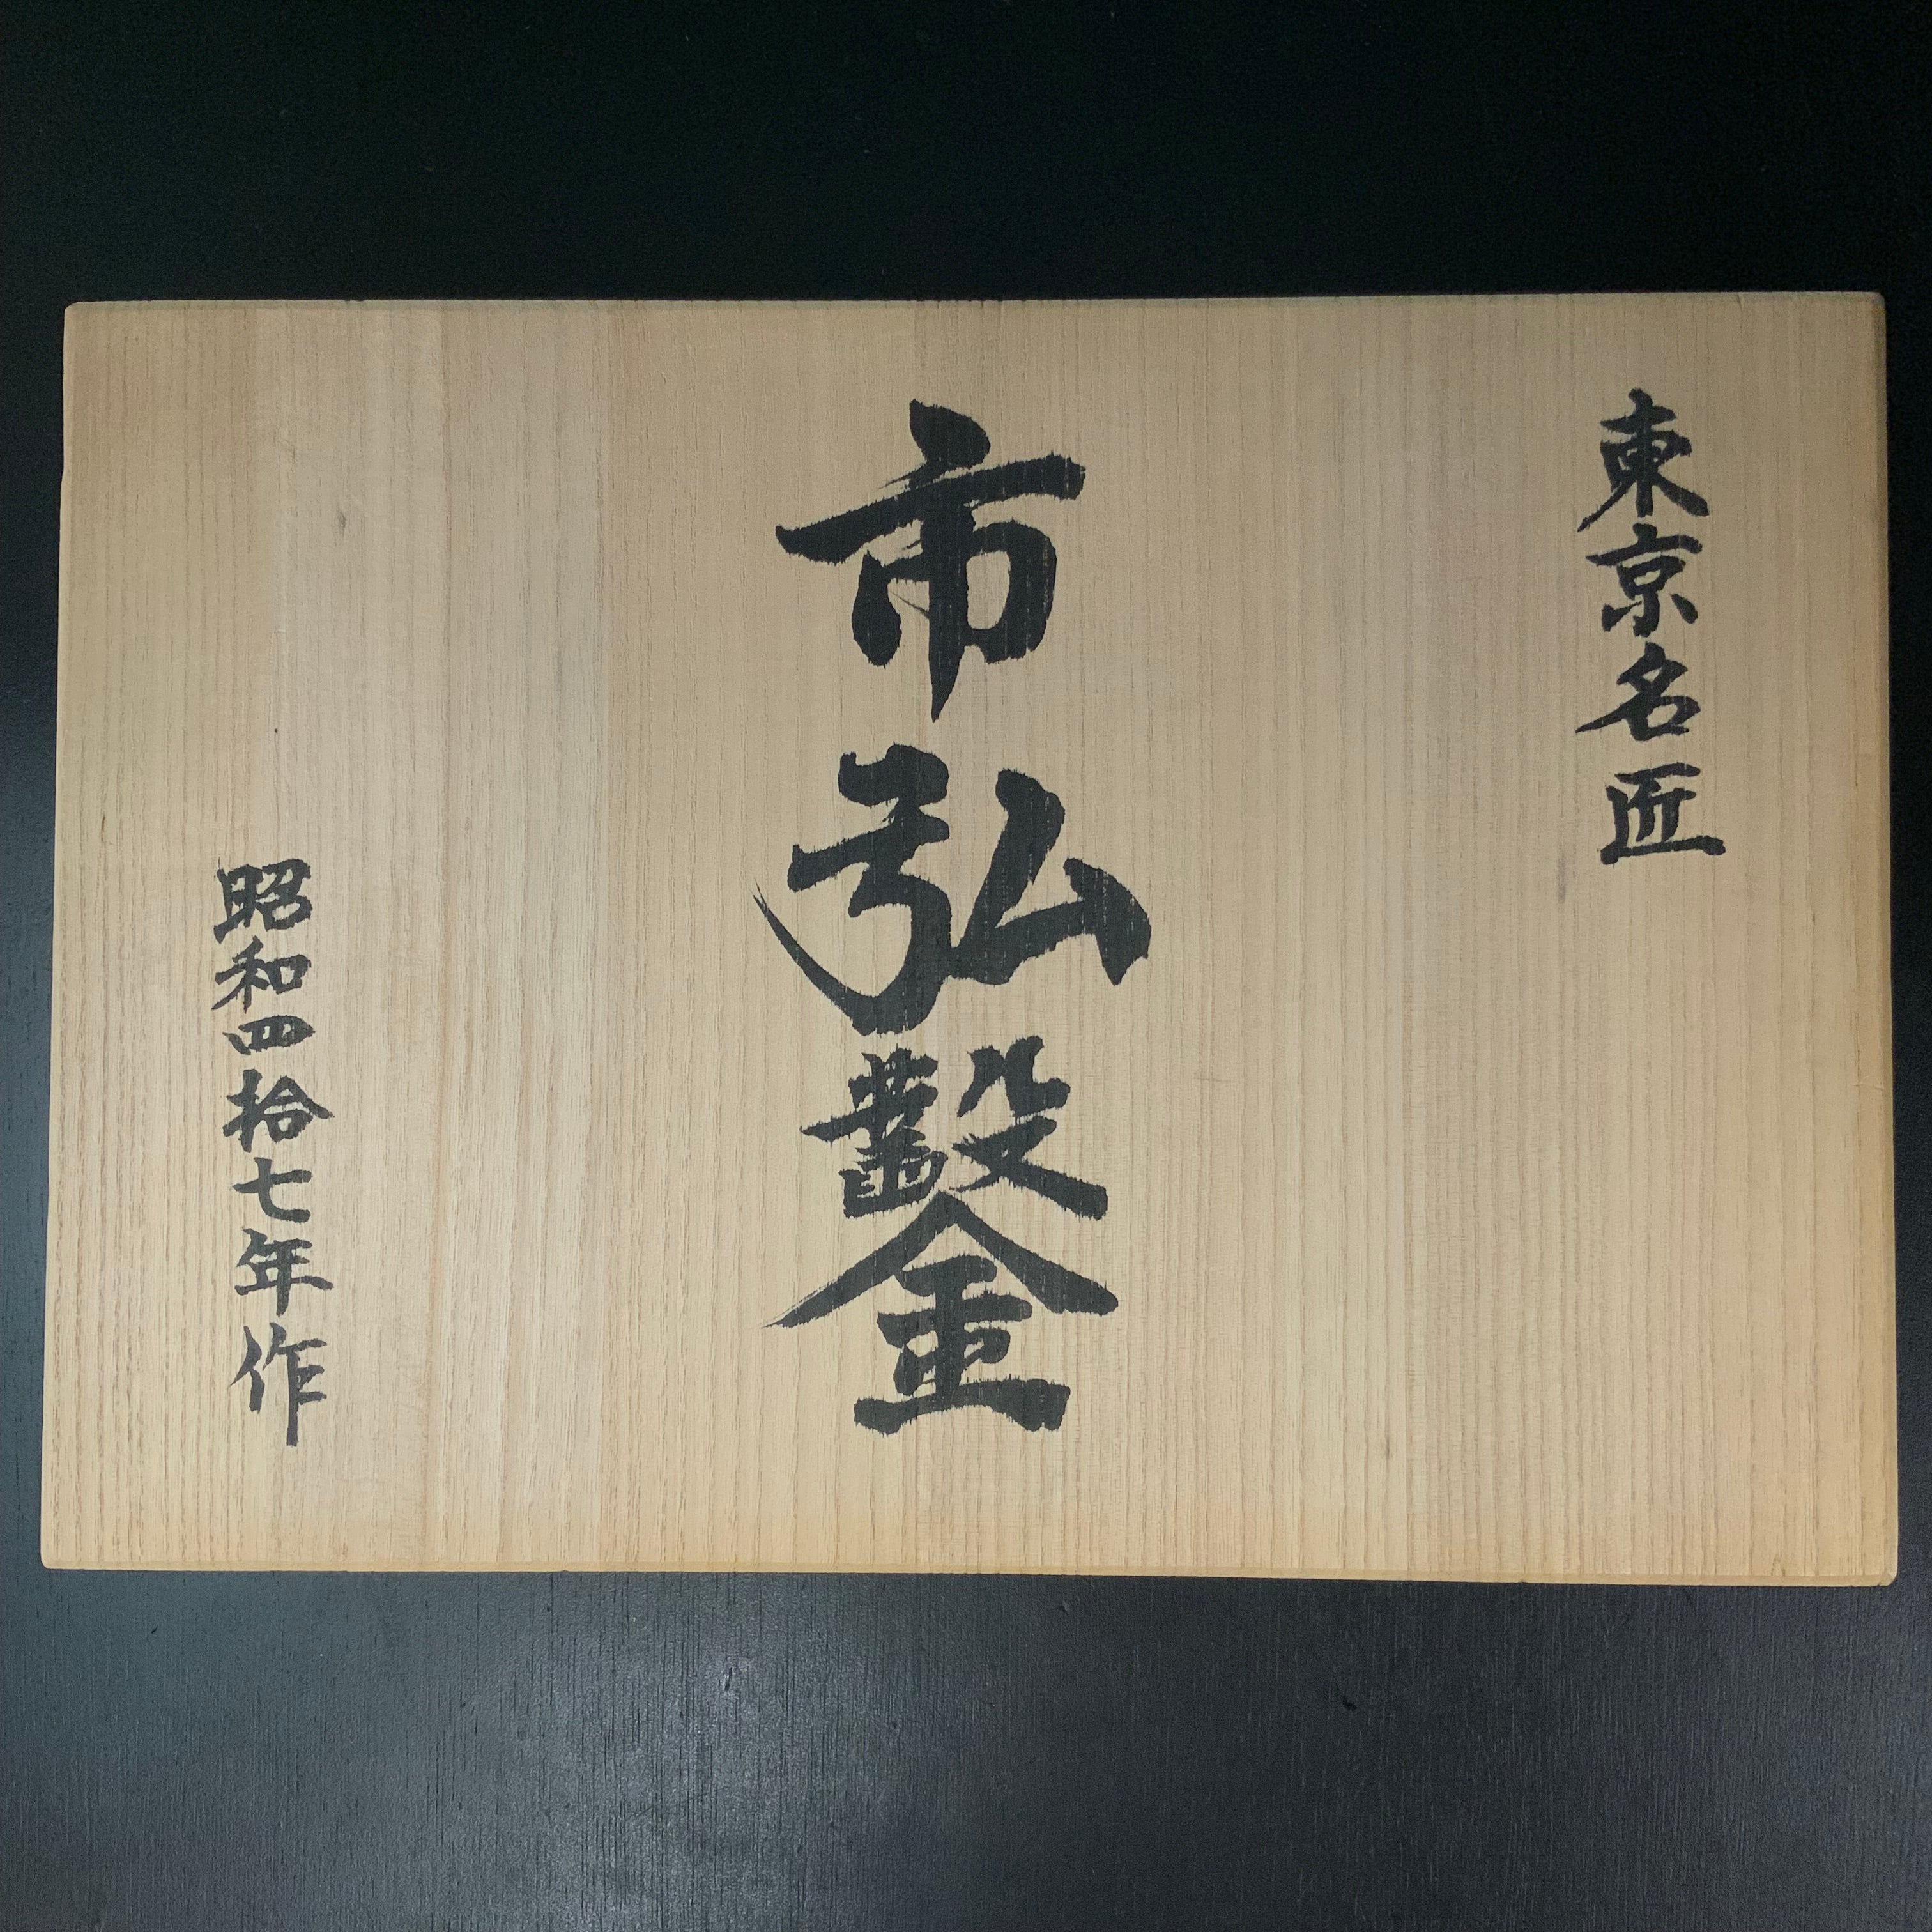 東京名匠
市弘鑿
昭和四拾七年作